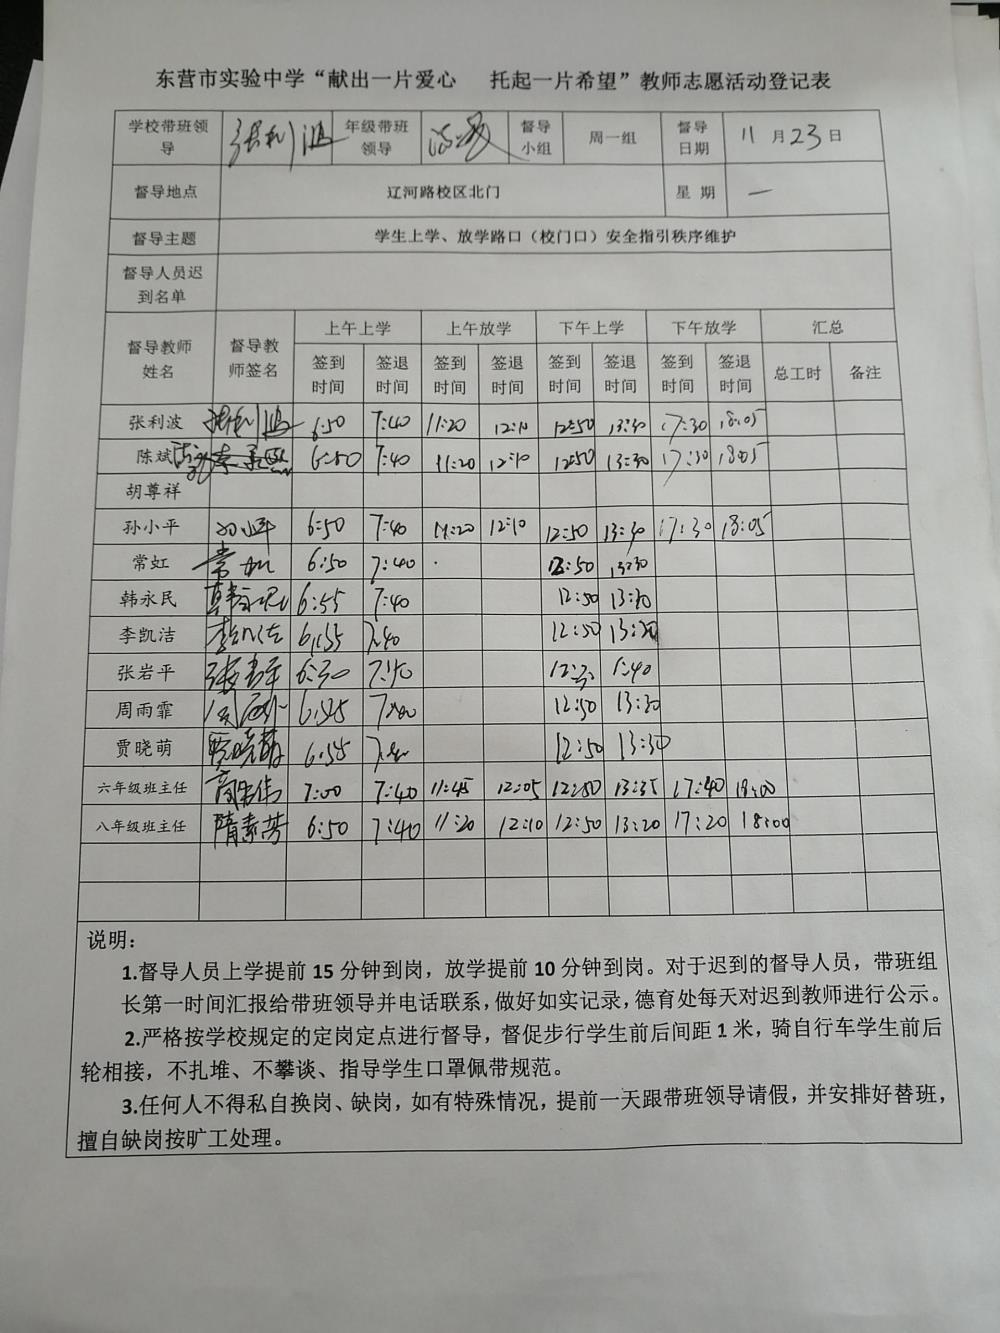 东营市实验中学“献出一片爱心 托起一片希望”教师志愿活动登记表
学校带班领导 张利波 年级带班领导 督导小组 周一组 督导日期 11月23日
督导地点 辽河路校区北门 星 期 一
督导主题 学生上学、放学路口（校门口）安全指引秩序维护
督导人员迟到名单
督导教师姓名 督导教师签名 上午上学 上午放学 下午上学 下午放学 汇总
签到时间 签退时间 签到时间 签退时间 签到时间 签退时间 签到时间 签退时间 总工时 备注
张利波 张利波 6:50 7:40 11:20 12:10 12:50 13:30 17:30 18:05
陈斌 6:50 7:40 11:20 12:10 12:50 13:30 17:30 18:05
胡尊祥
孙小平 孙小平 6:50 7:40 11:20 12:10 12:50 13:30 17:30 18:05
常虹 常虹 6:50 7:40 12:50 13:30
韩永民 韩永民 6:55 7:40 12:50 13:30
李凯洁 李凯洁 6:55 7:40 12:50 13:30
张岩平 张岩平 6:30 7:40 12:30 1:40
周雨霏 周雨霏 6:55 7:40 12:50 13:30
贾晓萌 贾晓萌 6:55 7:40 12:50 13:30
六年级班主任 7:00 7:40 11:45 12:05 12:50 13:35 17:40 18:00
八年级班主任 隋素芳 6:50 7:40 11:20 12:10 12:50 13:20 17:20 18:00
说明：
1.督导人员上学提前 15 分钟到岗，放学提前 10 分钟到岗。对于迟到的督导人员，带班组
长第一时间汇报给带班领导并电话联系，做好如实记录，德育处每天对迟到教师进行公示。
2.严格按学校规定的定岗定点进行督导，督促步行学生前后间距 1 米，骑自行车学生前后
轮相接，不扎堆、不攀谈、指导学生口罩佩带规范。
3.任何人不得私自换岗、缺岗，如有特殊情况，提前一天跟带班领导请假，并安排好替班，
擅自缺岗按旷工处理。